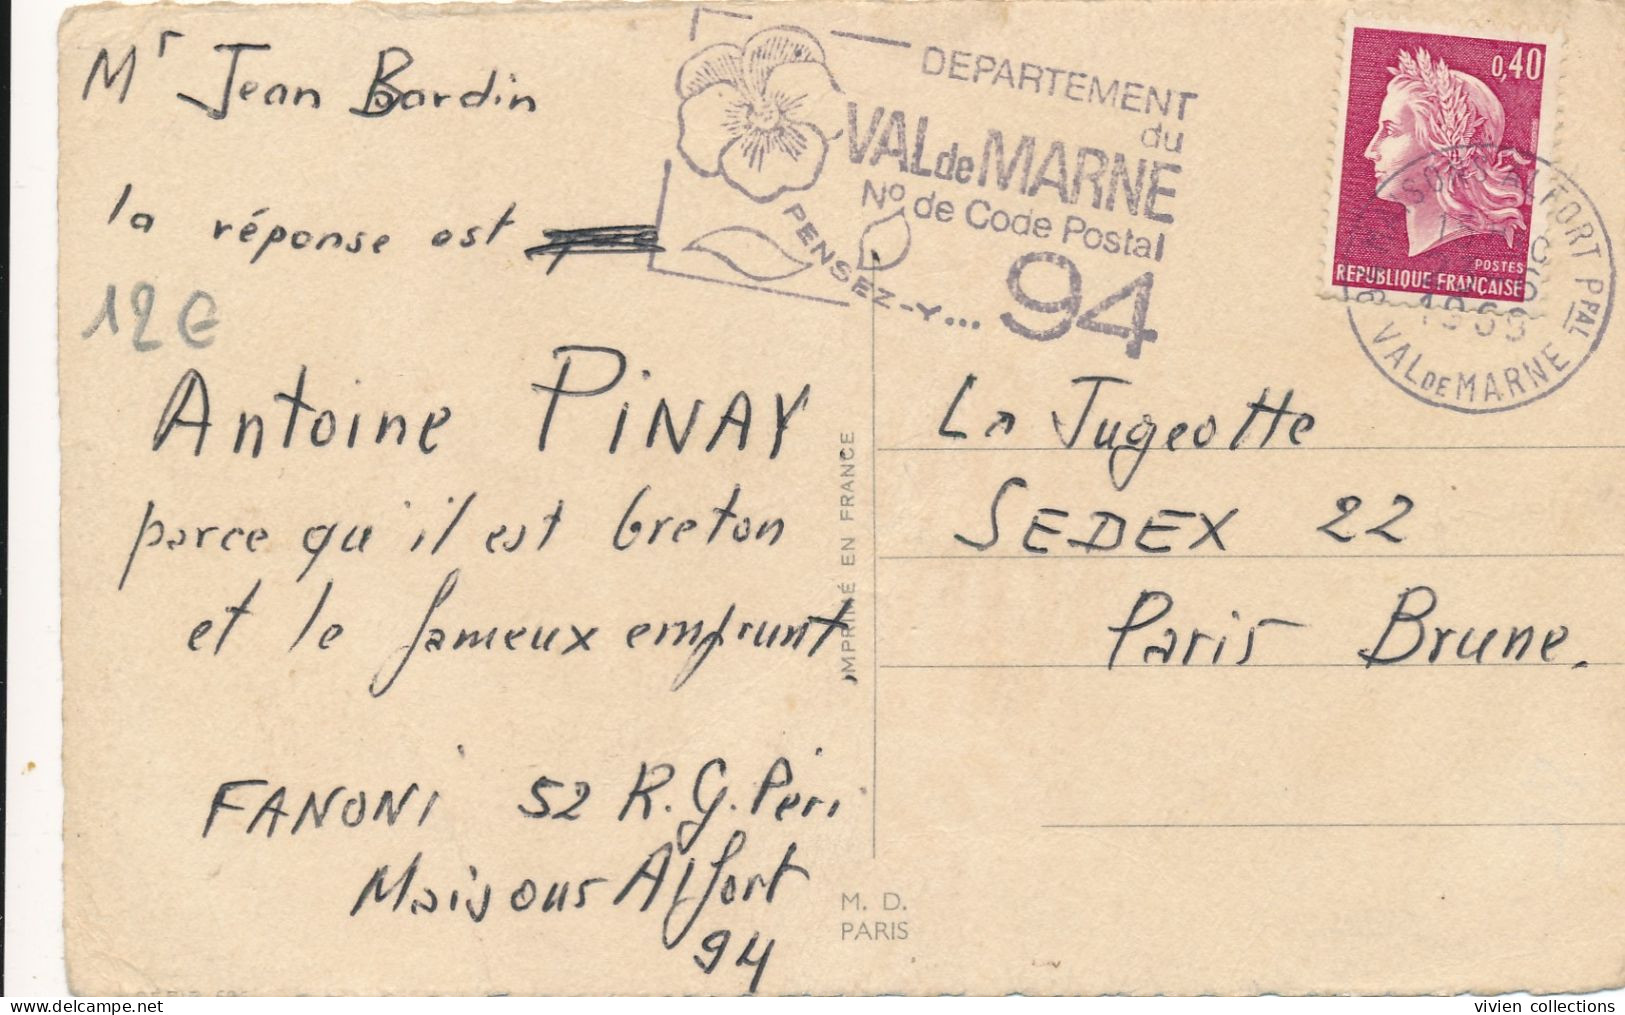 Mr Jean Bardin
la réponse est
12 €
Antoine PINAY
parce qu'il est breton
et le fameux emprunt
FANONI 52 R. G. Péri
Maisons Alfort
94
DEPARTEMENT
du
VAL de MARNE
No de Code Postal
94
PENSEZ-Y...
0,40
POSTES
REPUBLIQUE FRANÇAISE
ALFORT PPAL
1969
VAL DE MARNE
La Jugeotte
SEDEX 22
Paris Brune.
IMPRIMÉ EN FRANCE
M. D.
PARIS
vivien collections